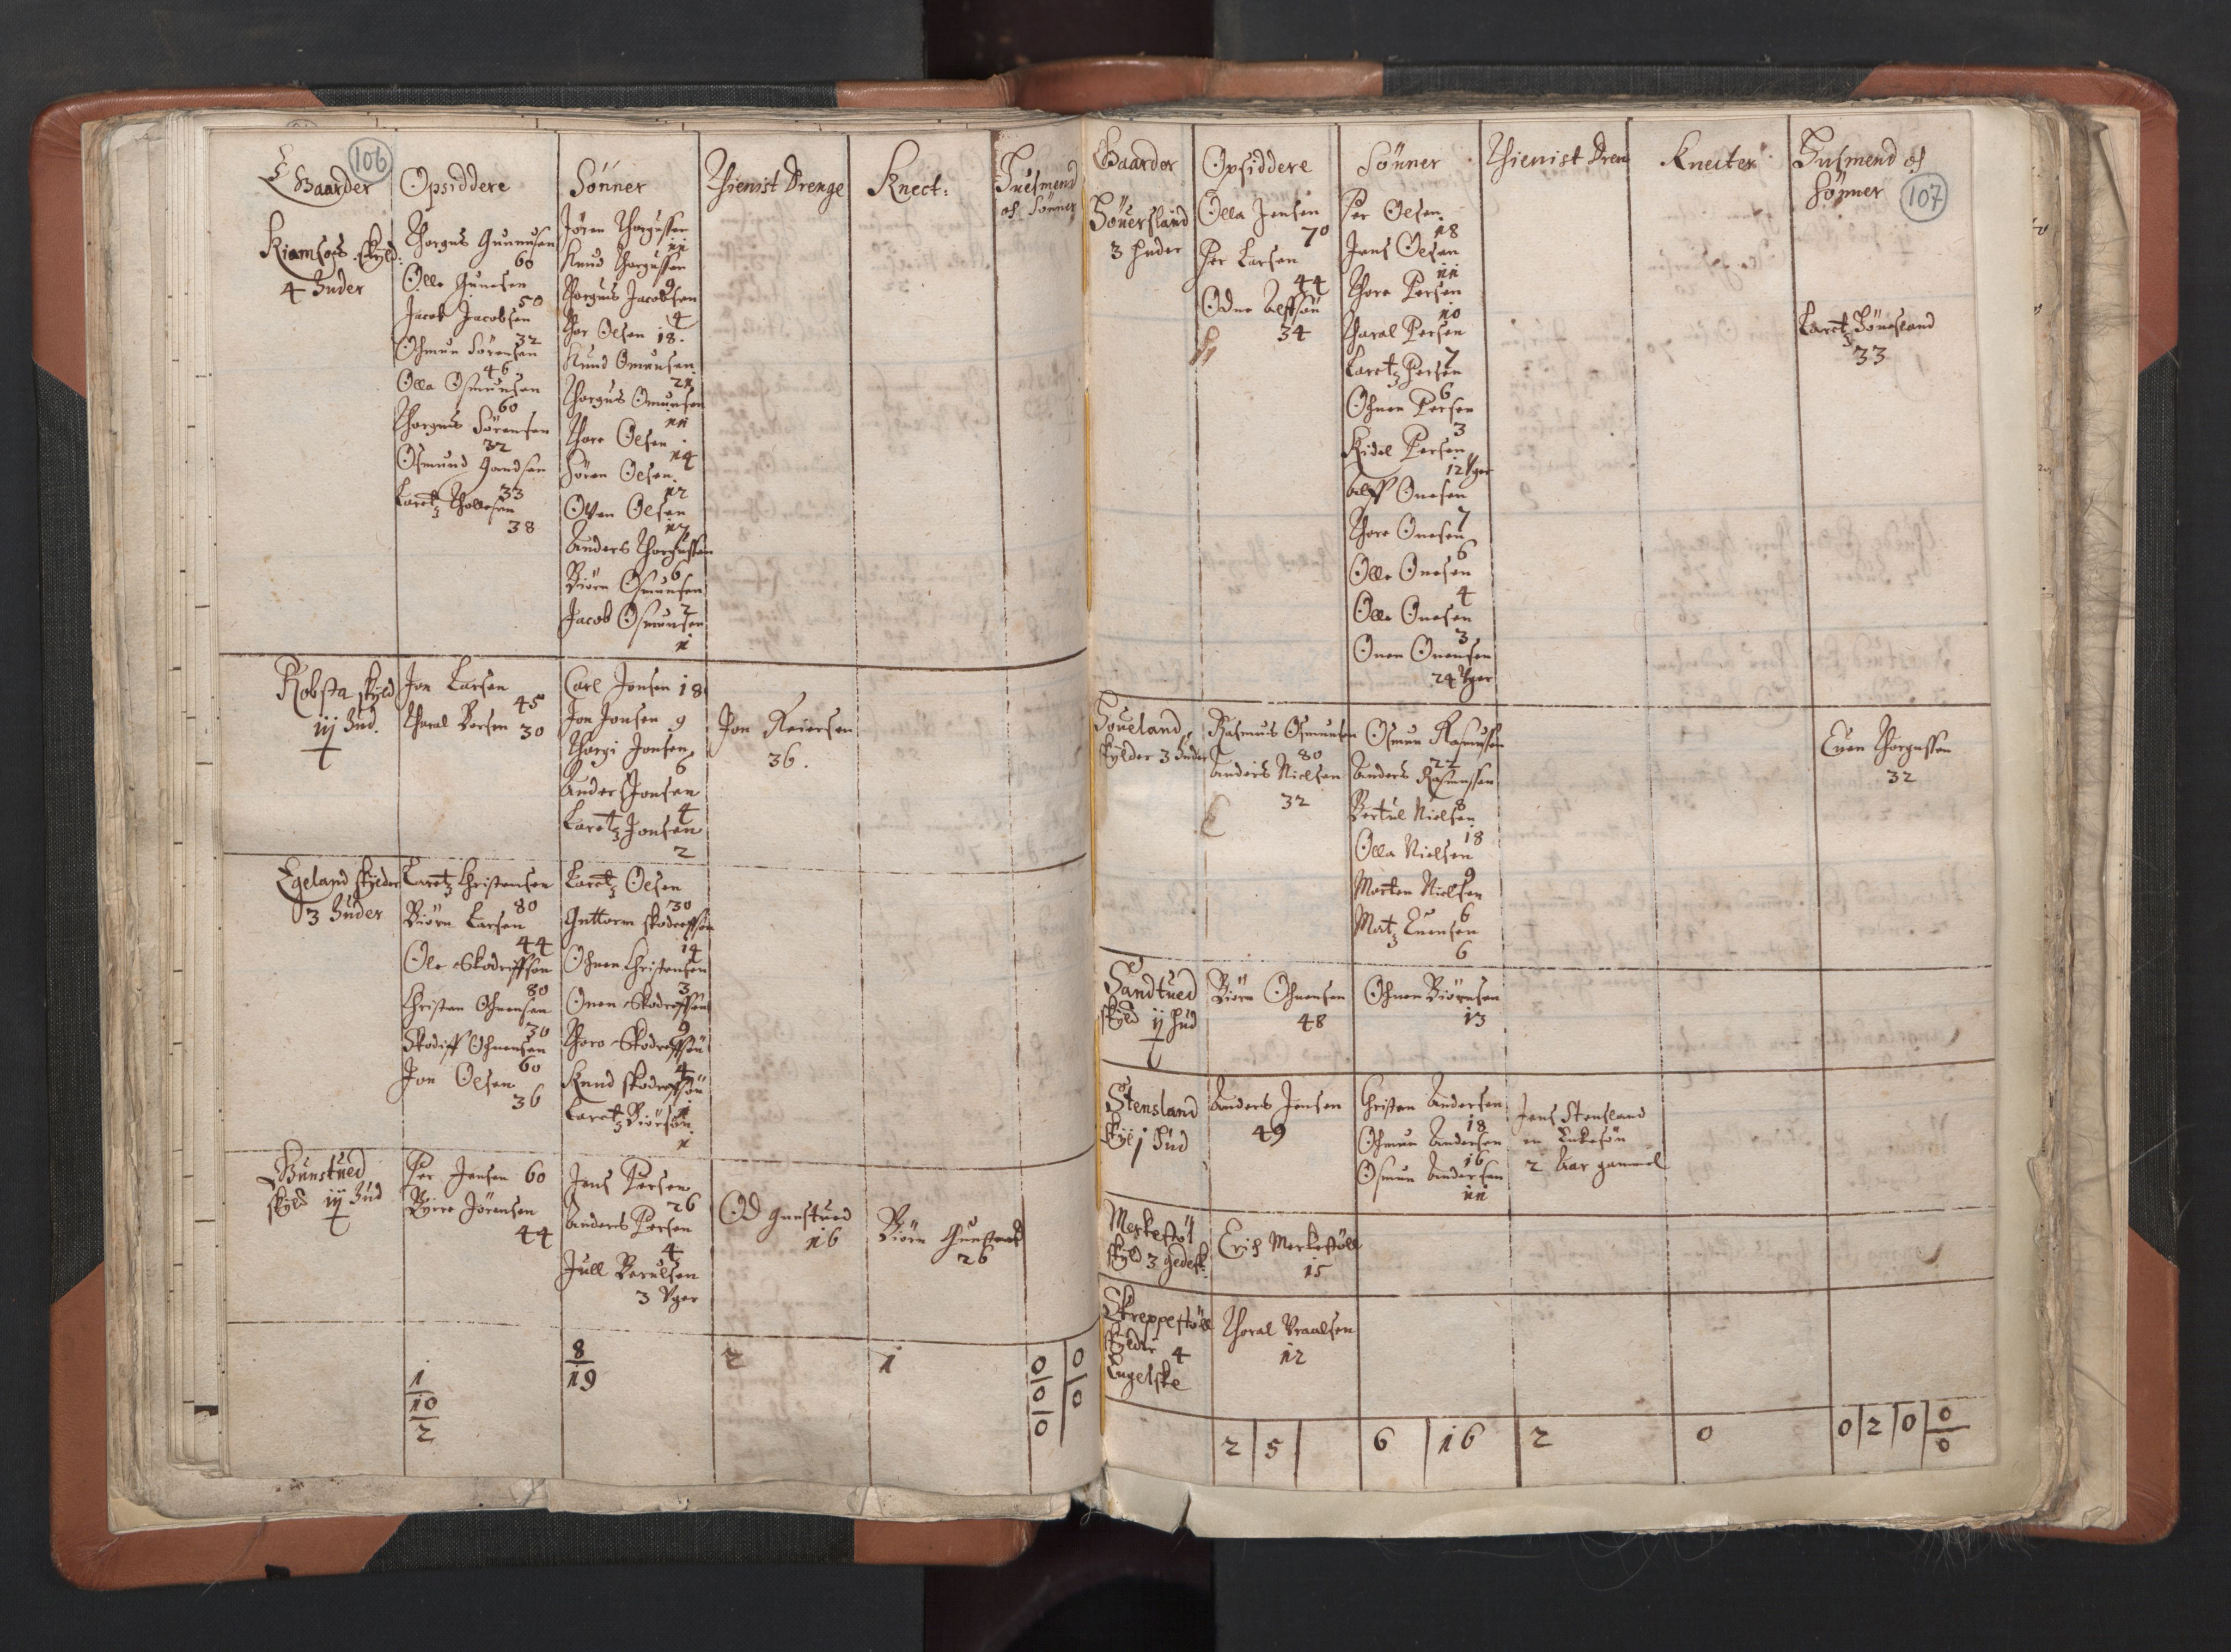 106
Gaarder
Opsiddere
Sönner
Thienist Drenge
Knect:
Huusmend
oc Sönner
Riamsoes skyld:
4 Huder
Thorgus Gunnusen
60
Olle Gunesen
50
Jacob Jacobsen
32
Ohmun Sörensen
46
Olla Osmunsen
60
Thorgus Sörensen
32
Osmund Gundsen
33
Laretz Thollesen
38
Jören Thorgussen
11
Knud Thorgussen
9
Thorgus Jacobsen
4
Thor Olsen 18.
Knud Omunsen
21
Thorgus Omunsen
11
Thore Olsen
14
Sören Olsen
12
Otten Olsen
12
Anders Thorgussen
6
Biörn Osmunsen
2
Jacob Osmunsen
1
Robsta skyld
iij Hud.
Jon Larsen
45
Tharal Bersen 30
Carl Jonsen 18
Jon Jonsen 9
Thorgi Jonsen
6
Anders Jonsen
4
Laretz Jonsen
2
Jon Reiersen
36.
Egeland skylder
3 Huder
Laretz Christensen
80
Biörn Larsen
44
Ole Skodeiffsön
80
Christen Ohnensen
30
Skodiff Ohnensen
60
Jon Olsen
36
Laretz Olsen
30
Guttorm Skodeiffsön
14
Ohnen Christensen
3
Onen Skodeiffsön
9
Thoro Skodeiffsön
4
Knud Skodeiffsön
1
Laretz Biörsön
1
Gunstued
skyld iij Hud
Per Jensen 60
Byrre Jörensen
44
Jens Persen
26
Anders Persen
4
Jull Berulsen
3 Vger
Od Gunstued
16
Biörn Gunstued
26
1
10
2
8
19
2
1
0
0
0
0
0
107
Gaarder
Opsiddere
Sönner
Thienist Dren
Knecter
Husmend oc
Sönner
Höuersland
3 huder
Olla Jensen
70
Per Larsen
44
Odne Alffsön
34
Per Olsen
18
Jens Olsen
11
Thore Persen
10
Tharal Persen
7
Laretz Persen
6
Ohnen Persen
3
Kidel Persen
12 Vger
Alff Onesen
7
Thore Onesen
6
Olle Onesen
4
Olle Onesen
3
Onen Onensen
24 Vger
Laretz Hönesland
33
Houeland
skylder 3 huder
Rasmus Osmunsen
80
Anders Nielsen
32
Osmun Rasmussen
22
Anders Rasmussen
8
Bertul Nielsen
18
Olla Nielsen
9
Morten Nielsen
6
Matz Euensen
6
Euen Thorgussen
32
Sandtued
skyld ij hud
Biörn Ohnensen
48
Ohnen Biörnsen
13
Stensland
skyl j Hud
Anders Jensen
49
Christen Andersen
18
Ohmun Andersen
16
Osmun Andersen
11
Jens Stensland
en Enkesön
2 Aar gammel
Merkestöl
skyld 3 gedesk:
Erich Merkestöll
15
Skreppestöll
skylder 4
Engelske
Thoral Vraalsen
12
2 5
6 16
2
0
0 2 0 0
0